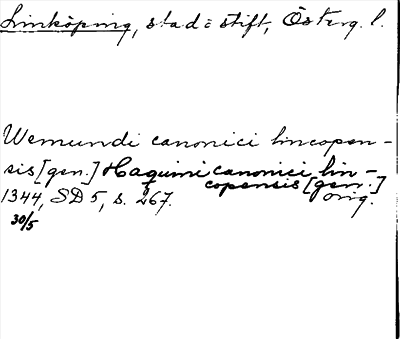 Linköping, stad o stift, Österg. l.
Wemundi canonici lincopen-
sis [gen.] Haquini canonici lin-
copensis [gen.]
1344, SD 5, s. 267. orig.
30/5